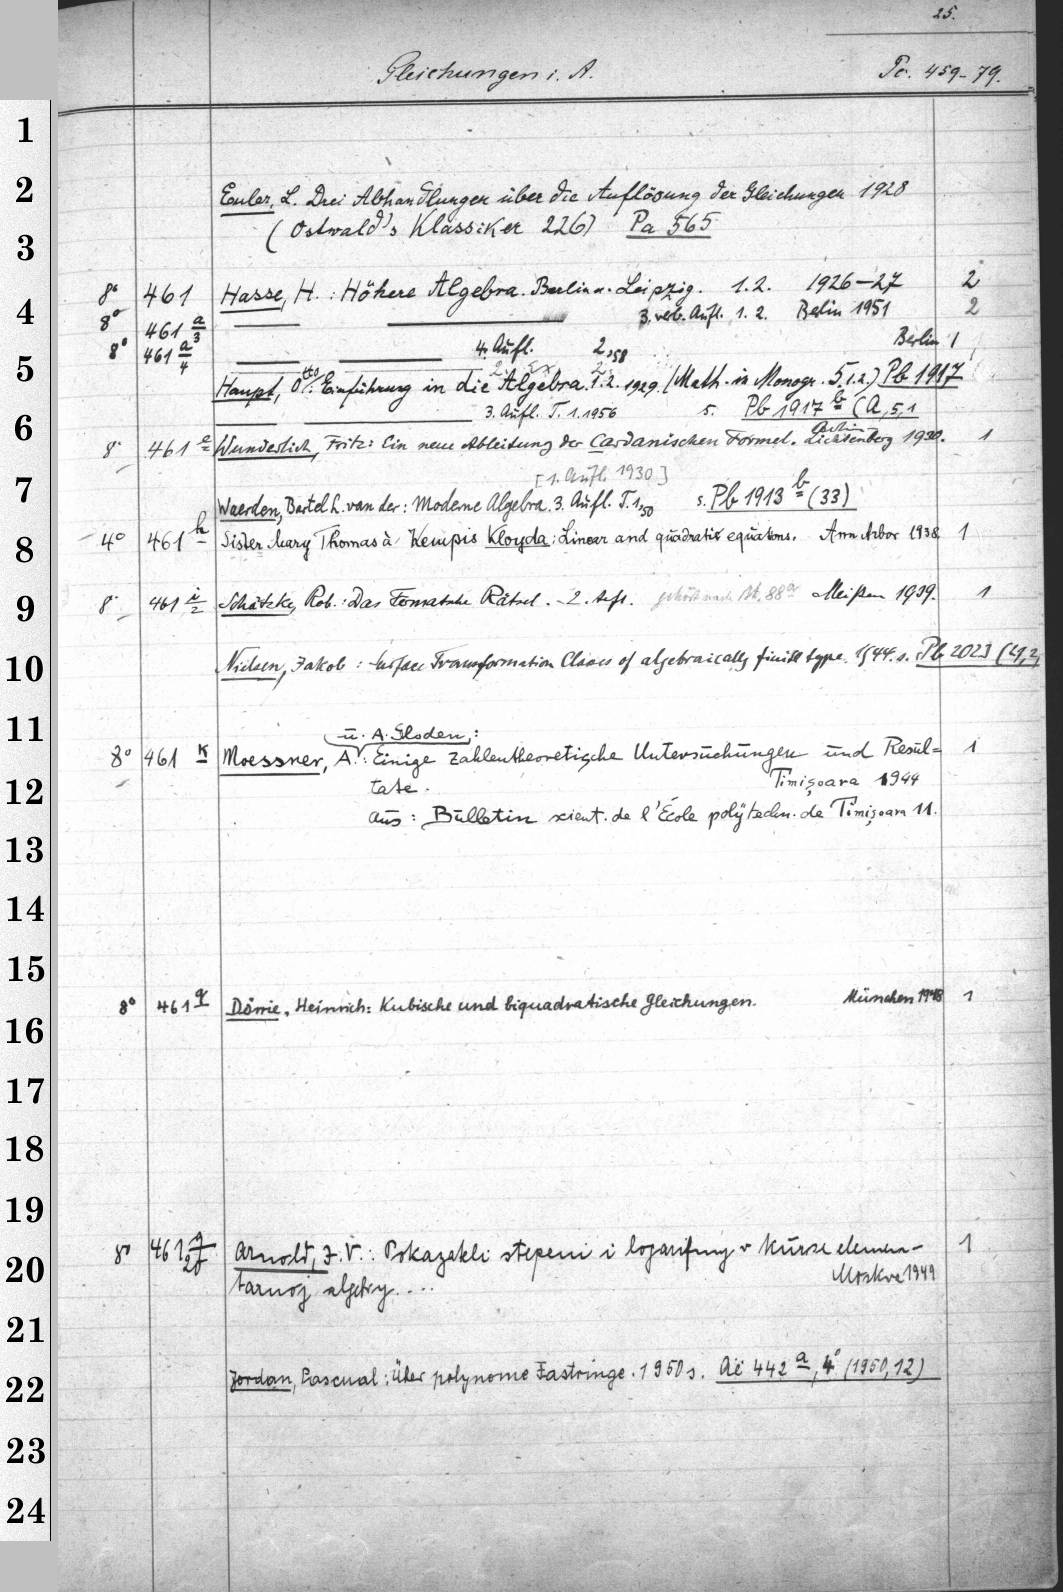 25.
Gleichungen i. A. Pc. 459-79.
1
2
Euler, L. Drei Abhandlungen über die Auflösung der Gleichungen 1928
(Ostwald's Klassiker 226) Pa 565
3
8° 461 Hasse, H.: Höhere Algebra. Berlin u. Leipzig. 1.2. 1926-27 2
4
8° 461 a/3 3. verb. Aufl. 1. 2. Berlin 1951 2
8° 461 a/4 4. Aufl. 2,58 Berlin 1
5
Haupt, Otto: Einführung in die Algebra. 1.2. 1929. (Math. in Monogr. 5,1.2.) Pb 1917
3. Aufl. T. 1. 1956 s. Pb 1917 b (A, 5,1
6
8° 461 e Wunderlich, Fritz: Ein neue Ableitung der Cardanischen Formel. Lichtenberg 1930. 1
[1. Aufl. 1930]
7
Waerden, Bartel L. van der: Moderne Algebra. 3. Aufl. T. 1,50 s. Pb 1913 b (33)
8
4° 461 h Sister Mary Thomas à Kempis Kloyda: Linear and quadratic equations. Ann Arbor 1938 1
9
8° 461 i/2 Schätzke, Rob.: Das Fermatsche Rätsel. - 2. Aufl. gehört nach 88a Meißen 1939. 1
10
Nielsen, Jakob: Surface Transformation Classes of algebraically finite type. 1944. s. Pb 2023 (21,2
11
u. A. Gloden:
8° 461 k Moessner, A.: Einige zahlentheoretische Untersuchungen und Resul= 1
12
tate. Timişoara 1944
aus: Bulletin scient. de l'École polytechn. de Timişoara 11.
13
14
15
8° 461 q Dörrie, Heinrich: Kubische und biquadratische Gleichungen. München 1948 1
16
17
18
19
8° 461 Arnold, I. V.: Pokazateli stepeni i logarifmy v kurse elemen- 1
20
Moskva 1949
tarnoj algebry. ...
21
22
Jordan, Pascual: über polynome Fastringe. 1950 s. Ac 442 a, 4° (1950,12)
23
24